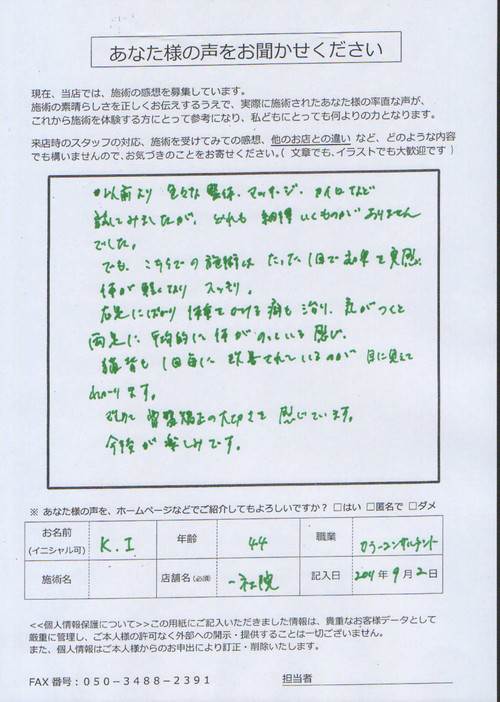 あなた様の声をお聞かせください
現在、当店では、施術の感想を募集しています。
施術の素晴らしさを正しくお伝えするうえで、実際に施術されたあなた様の率直な声が、
これから施術を体験する方にとって参考になり、私どもにとっても何よりの力となります。
来店時のスタッフの対応、施術を受けてみての感想、他のお店との違い など、どのような内容
でも構いませんので、お気づきのことをお寄せください。（ 文章でも、イラストでも大歓迎です ）
以前より 色々な整体、マッサージ、カイロなど
試してみましたが、どれも 納得いくものがありません
でした。
でも、こちらでの施術は たった1回で効果を実感。
体が軽くなり スッキリ。
右足にばかり 体重をかける癖も治り、気がつくと
両足に 平均的に 体がのっている感じ。
猫背も 1回毎に 改善されているのが 目に見えて
わかります。
改めて 骨盤矯正の大切さを 感じています。
今後が楽しみです。
※ あなた様の声を、ホームページなどでご紹介してもよろしいですか？ □はい □匿名で □ダメ
お名前 (イニシャル可) K.I 年齢 44 職業 カラーコンサルタント
施術名 店舗名 (必須) 一社院 記入日 2011年 9月 2日
<<個人情報保護について>>この用紙にご記入いただきました情報は、貴重なお客様データとして
厳重に管理し、ご本人様の許可なく外部への開示・提供することは一切ございません。
また、個人情報はご本人様からのお申出により訂正・削除いたします。
FAX 番号：０５０－３４８８－２３９１ 担当者